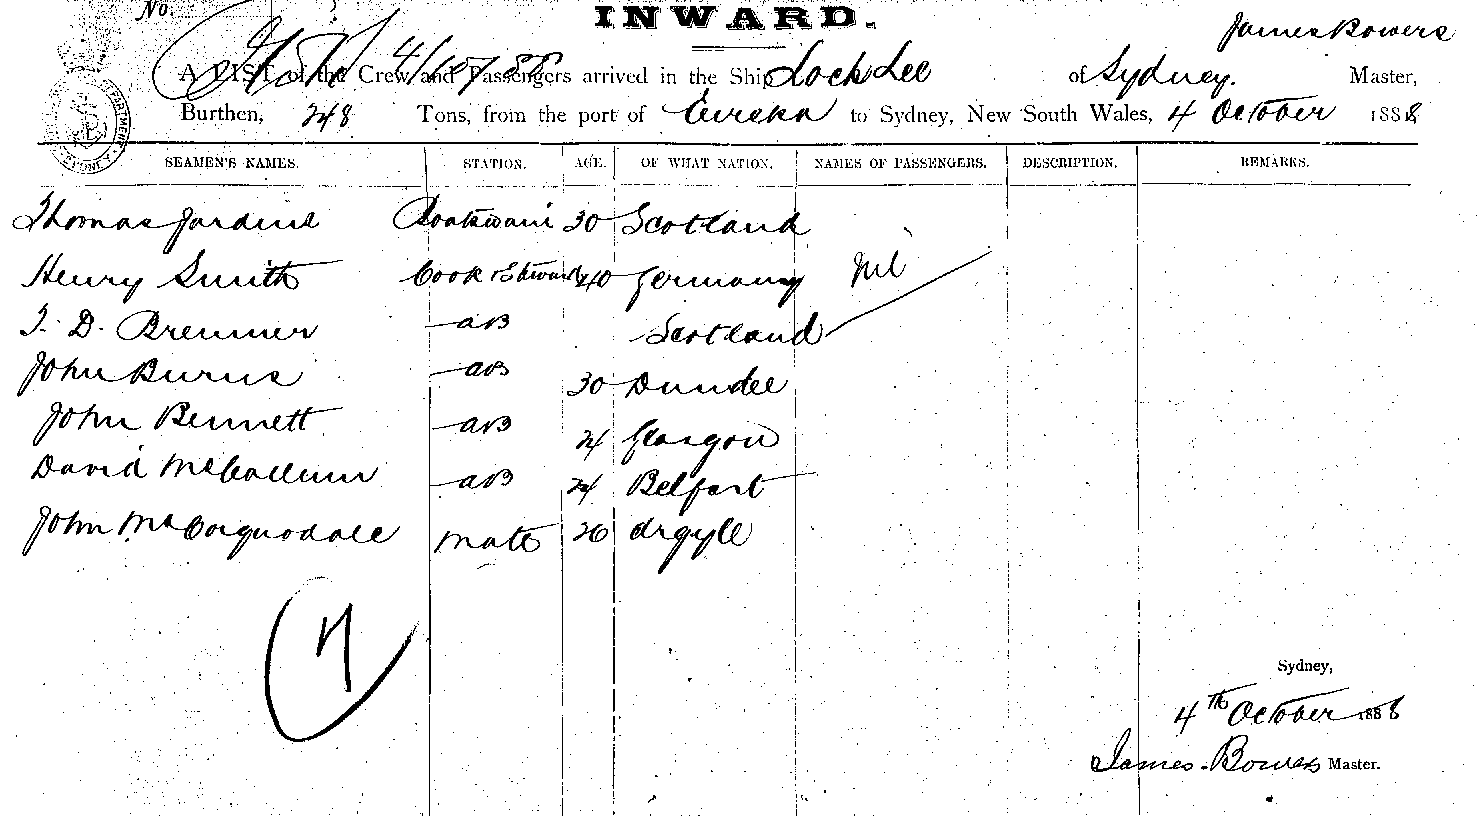 No.
INWARD.
James Bowers
4/10/88
A LIST of the Crew and Passengers arrived in the Ship Lock Lee of Sydney. Master,
Burthen, 248 Tons, from the port of Eureka to Sydney, New South Wales, 4 October 1888
SEAMEN'S NAMES. STATION. AGE. OF WHAT NATION. NAMES OF PASSENGERS. DESCRIPTION. REMARKS.
Thomas Jardine Boatswain 30 Scotland
Henry Smith Cook & Steward 40 Germany Nil
T. D. Bremner AB Scotland
John Burns AB 30 Dundee
John Bennett AB 24 Glasgow
David McCallum AB 24 Belfast
John McCorquodale Mate 26 Argyle
7
Sydney,
4th October 1888
James Bowers Master.